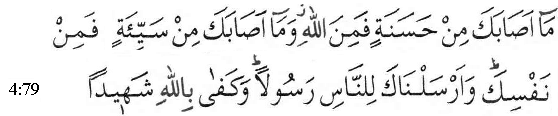 مَاۤ اَصَابَكَ مِنْ حَسَنَةٍ فَمِنَ اللّٰهِ ۡ وَمَاۤ اَصَابَكَ مِنْ سَيِّئَةٍ فَمِنْ
4:79 نَفْسِكَ ؕ وَاَرْسَلْنَاكَ لِلنَّاسِ رَسُوْلًا ؕ وَكَفٰى بِاللّٰهِ شَهِيْدًا